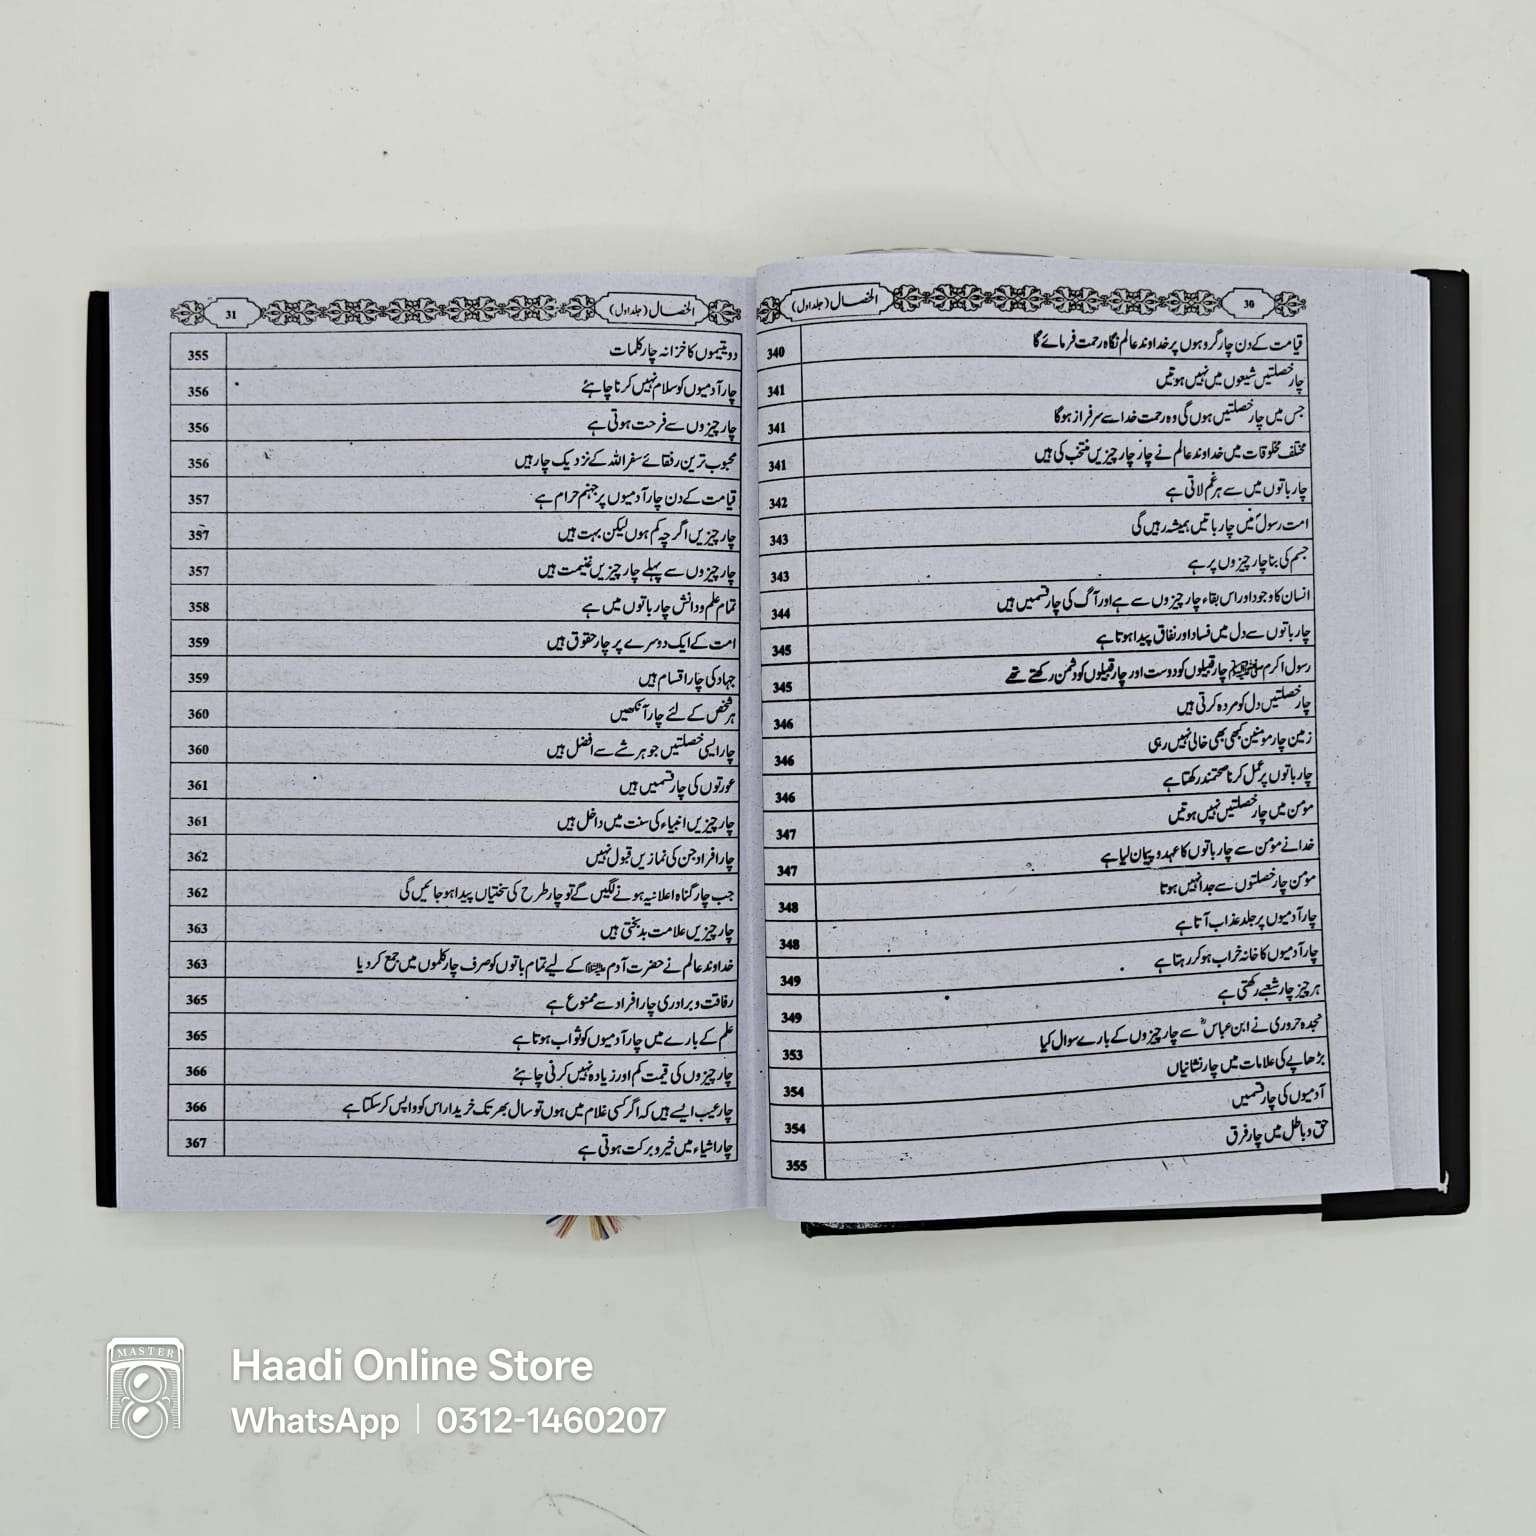 30
الخصال (جلد اول)
قیامت کے دن چار گروہوں پر خداوند عالم نگاہ رحمت فرمائے گا 340
چار خصلتیں شیعوں میں نہیں ہوتیں 341
جس میں چار خصلتیں ہوں گی وہ رحمت خدا سے سرفراز ہوگا 341
مختلف مخلوقات میں خداوند عالم نے چار چار چیزیں منتخب کی ہیں 341
چار باتوں میں سے ہر غم لاتی ہے 342
امت رسولؐ میں چار باتیں ہمیشہ رہیں گی 343
جسم کی بنا چار چیزوں پر ہے 343
انسان کا وجود اور اس بقاء چار چیزوں سے ہے اور آگ کی چار قسمیں ہیں 344
چار باتوں سے دل میں فساد اور نفاق پیدا ہوتا ہے 345
رسول اکرم ﷺ چار قبیلوں کو دوست اور چار قبیلوں کو دشمن رکھتے تھے 345
چار خصلتیں دل کو مردہ کرتی ہیں 346
زمین چار مومنین کبھی بھی خالی نہیں رہی 346
چار باتوں پر عمل کرنا صحتمند رکھتا ہے 346
مومن میں چار خصلتیں نہیں ہوتیں 347
خدا نے مومن سے چار باتوں کا عہد و پیمان لیا ہے 347
مومن چار خصلتوں سے جدا نہیں ہوتا 348
چار آدمیوں پر جلد عذاب آتا ہے 348
چار آدمیوں کا خانہ خراب ہو کر رہتا ہے 349
ہر چیز چار شعبے رکھتی ہے 349
نجدہ حروری نے ابن عباسؓ سے چار چیزوں کے بارے سوال کیا 353
بڑھاپے کی علامات میں چار نشانیاں 354
آدمیوں کی چار قسمیں 354
حق و باطل میں چار فرق 355
الخصال (جلد اول)
31
دو یتیموں کا خزانہ چار کلمات 355
چار آدمیوں کو سلام نہیں کرنا چاہئے 356
چار چیزوں سے فرحت ہوتی ہے 356
محبوب ترین رفقائے سفر اللہ کے نزدیک چار ہیں 356
قیامت کے دن چار آدمیوں پر جہنم حرام ہے 357
چار چیزیں اگرچہ کم ہوں لیکن بہت ہیں 357
چار چیزوں سے پہلے چار چیزیں غنیمت ہیں 357
تمام علم و دانش چار باتوں میں ہے 358
امت کے ایک دوسرے پر چار حقوق ہیں 359
جہاد کی چار اقسام ہیں 359
ہر شخص کے لئے چار آنکھیں 360
چار ایسی خصلتیں جو ہر شے سے افضل ہیں 360
عورتوں کی چار قسمیں ہیں 361
چار چیزیں انبیاء کی سنت میں داخل ہیں 361
چار افراد جن کی نمازیں قبول نہیں 362
جب چار گناہ اعلانیہ ہونے لگیں گے تو چار طرح کی سختیاں پیدا ہو جائیں گی 362
چار چیزیں علامت بدبختی ہیں 363
خداوند عالم نے حضرت آدم علیہ السلام کے لیے تمام باتوں کو صرف چار کلموں میں جمع کر دیا 363
رفاقت و برادری چار افراد سے ممنوع ہے 365
علم کے بارے میں چار آدمیوں کو ثواب ہوتا ہے 365
چار چیزوں کی قیمت کم اور زیادہ نہیں کرنی چاہئے 366
چار عیب ایسے ہیں کہ اگر کسی غلام میں ہوں تو سال بھر تک خریدار اس کو واپس کر سکتا ہے 366
چار اشیاء میں خیر و برکت ہوتی ہے 367
MASTER
Haadi Online Store
WhatsApp | 0312-1460207